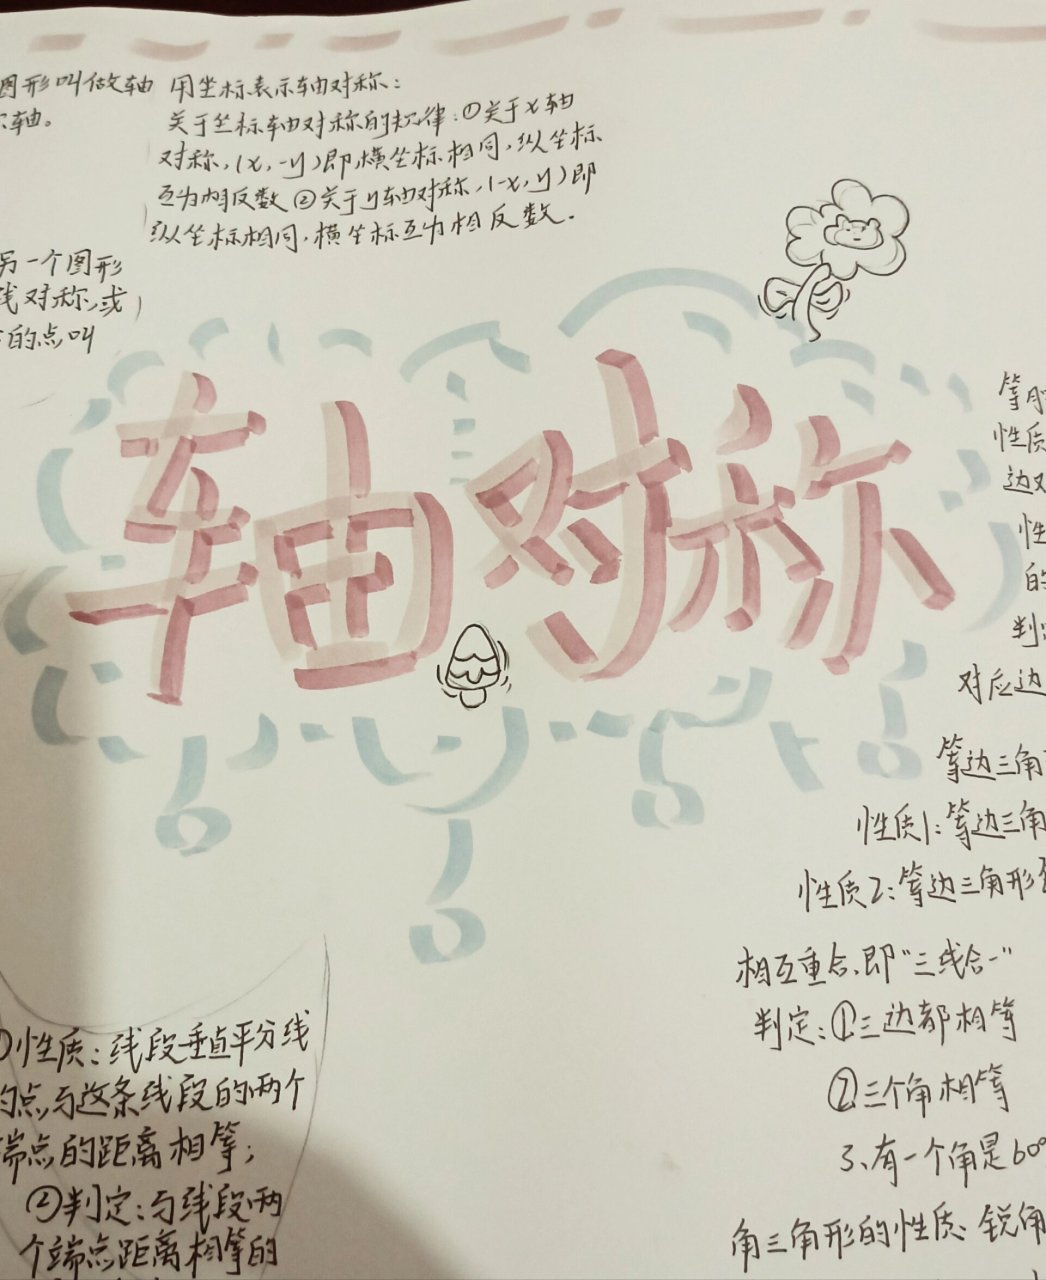 图形叫做轴
轴。
用坐标表示轴对称:
关于坐标轴对称的规律:①关于x轴
对称,(x,-y)即横坐标相同,纵坐标
互为相反数②关于y轴对称,(-x,y)即
纵坐标相同,横坐标互为相反数.
另一个图形
线对称,或
的点叫
轴对称
等
性质
边
性
的
判
对应边
等边三角
性质1:等边三角
性质2:等边三角形
相互重合,即"三线合一"
判定:①三边都相等
②三个角相等
3、有一个角是60°
角三角形的性质:锐角
①性质:线段垂直平分线
的点与这条线段的两个
端点的距离相等;
②判定:与线段两
个端点距离相等的